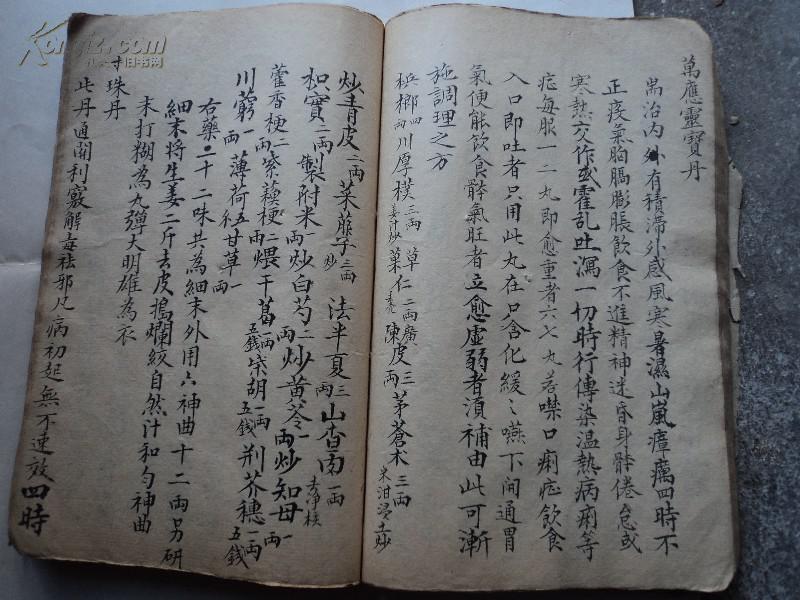 萬應靈寶丹
耑治內外有積滯外感風寒暑濕山嵐瘴癘四時不
正疫氣胸膈膨脹飲食不進精神迷昏身體倦怠或
寒熱交作或霍乱吐瀉一切時行傳染温熱病痢等
症每服一二丸即愈重者六七丸若噤口痢症飲食
入口即吐者只用此丸在口含化緩〻嚥下開通胃
氣便能飲食體氣旺者立愈虛弱者須補由此可漸
施調理之方
梹榔四兩川厚樸三兩姜汁炒草菓仁二兩廣陳皮三兩茅蒼术三兩米泔浸土炒
炒青皮二兩菜菔子三兩炒法半夏三兩山查肉一兩去净核
枳實二兩製附米一兩炒白芍二兩炒黄芩一兩炒知母一兩
藿香梗二兩紫蘓梗二兩煨干葛一兩五錢柴胡一兩五錢荆芥穗一兩五錢
川藭一兩薄荷五个甘草一兩
右藥二十二味共為細末外用六神曲十二兩另研
細末將生姜二斤去皮搗爛絞自然汁和勻神曲
末打糊為丸彈大明雄為衣
珠丹
此丹通関利竅解毒祛邪凡病初起無不速效四時